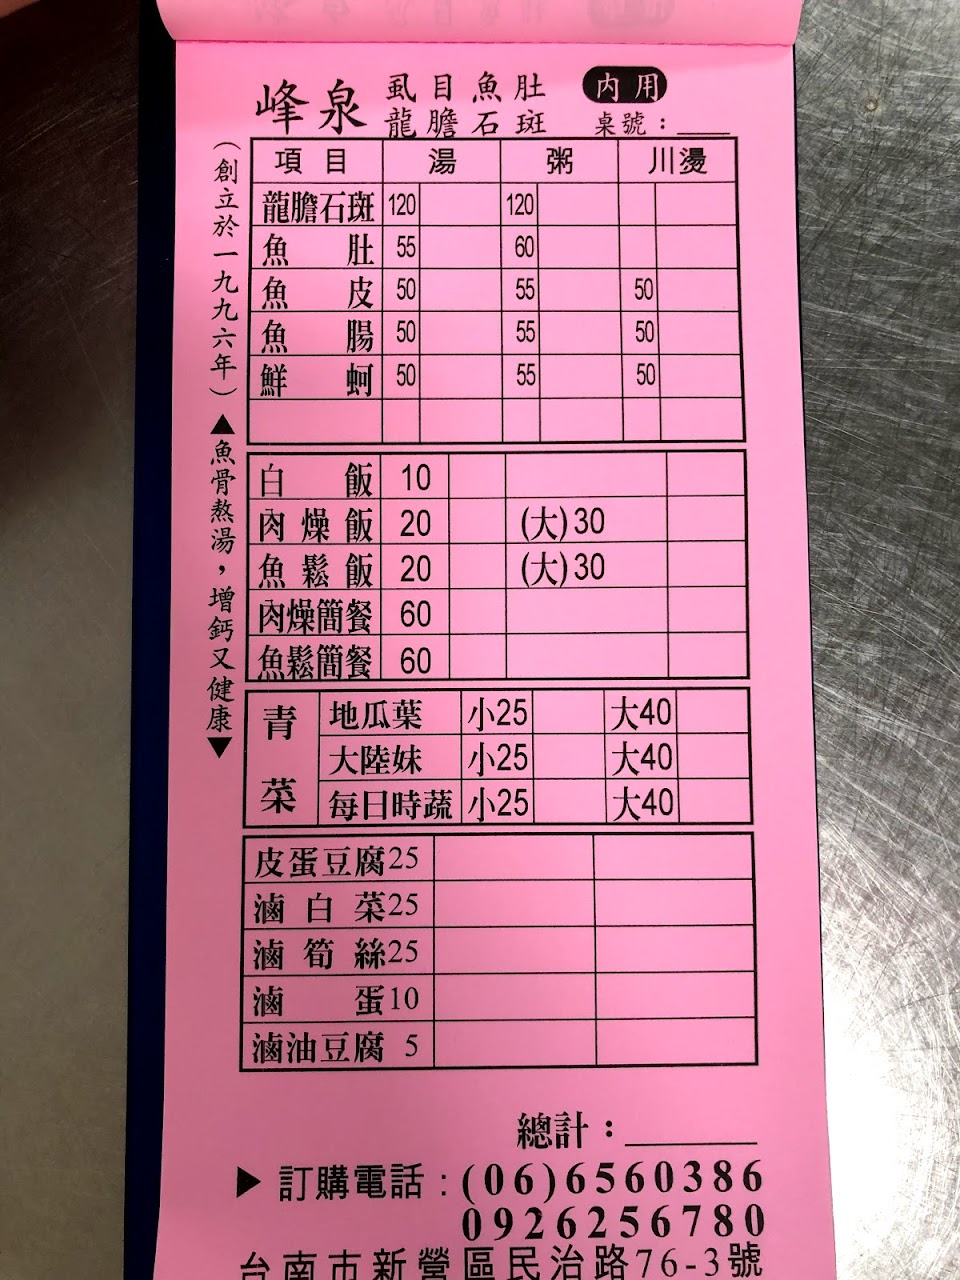 峰泉
虱目魚肚
龍膽石斑
內用
桌號：
(創立於一九九六年)▲魚骨熬湯，增鈣又健康▼
項目 湯 粥 川燙
龍膽石斑 120 120
魚肚 55 60
魚皮 50 55 50
魚腸 50 55 50
鮮蚵 50 55 50
白飯 10
肉燥飯 20 (大)30
魚鬆飯 20 (大)30
肉燥簡餐 60
魚鬆簡餐 60
青菜
地瓜葉 小25 大40
大陸妹 小25 大40
每日時蔬 小25 大40
皮蛋豆腐25
滷白菜25
滷筍絲25
滷蛋10
滷油豆腐 5
總計：
▶訂購電話：(06)6560386
0926256780
台南市新營區民治路76-3號